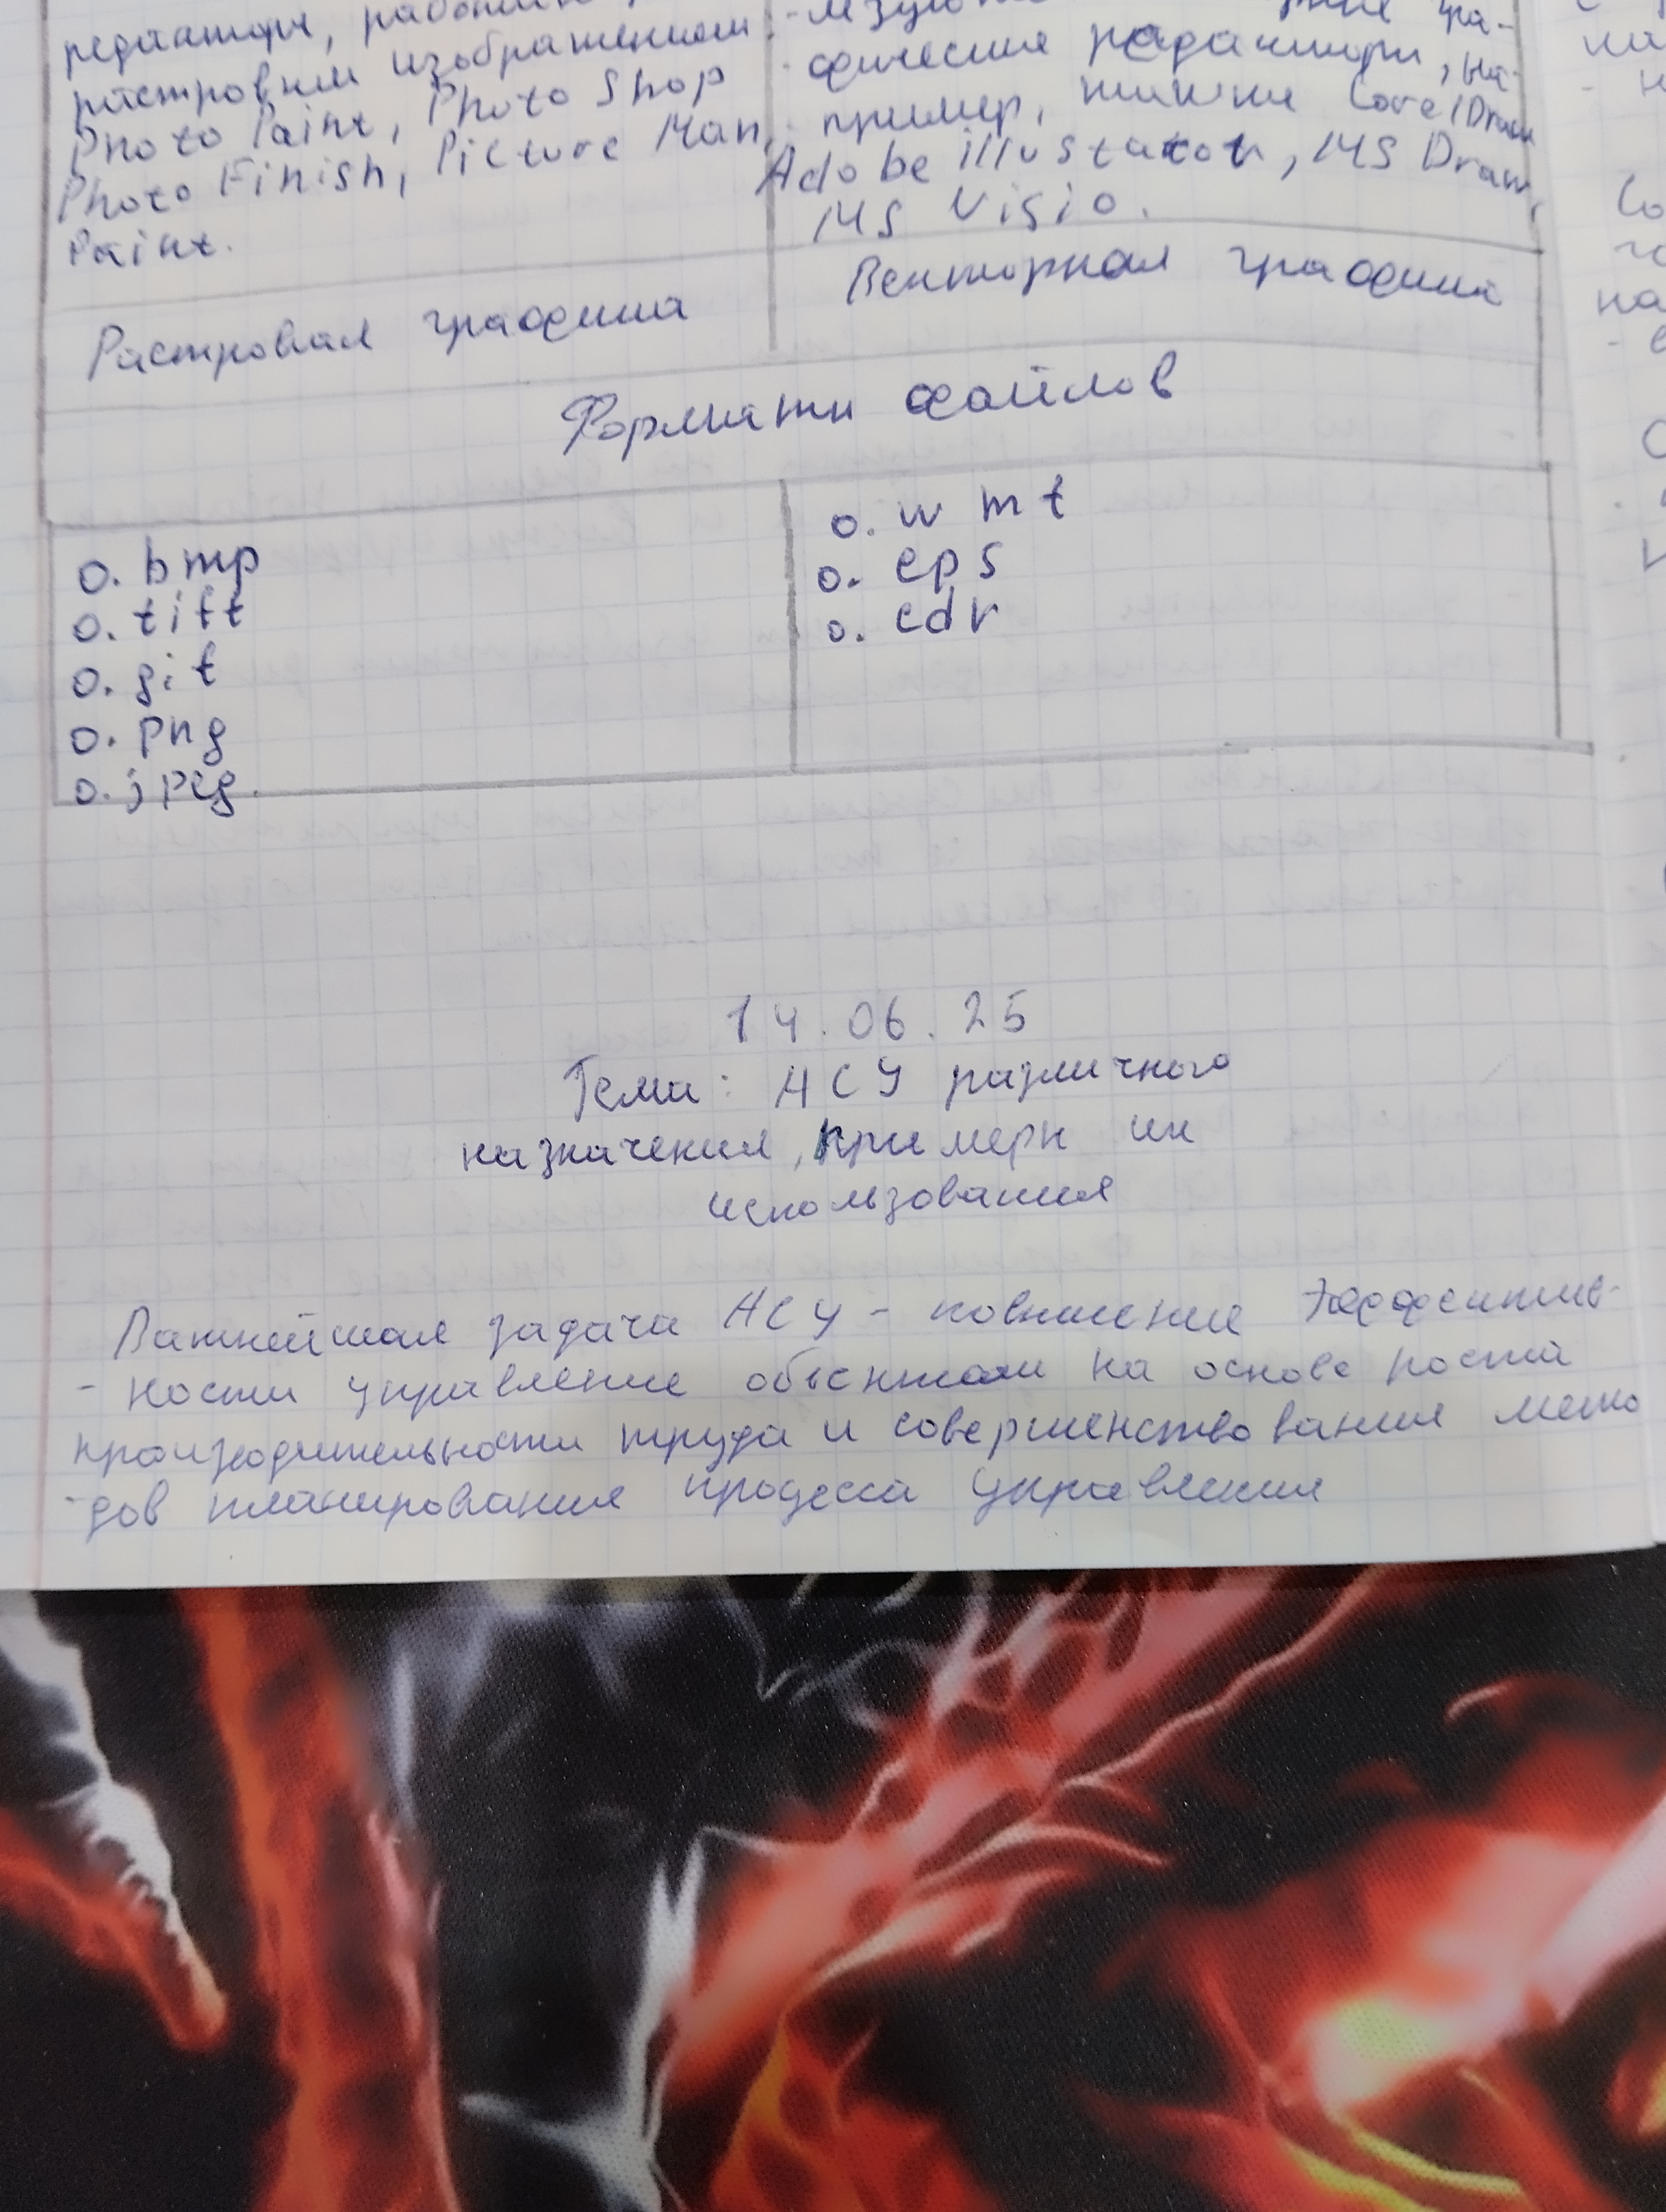 редакторы, работающие
растровыми изображениями:
Photo Paint, Photo Shop
Photo Finish, Picture Man,
Paint.
фические редакторы, на-
пример, такие Corel Draw
Adobe illustator, MS Draw,
MS Visio.
Растровая графика
Векторная графика
Форматы файлов
o. bmp
o. tiff
o. gif
o. png
o. jpeg.
o. wmf
o. eps
o. cdr
14.06.25
Тема: АСУ различного
назначения, примеры их
использования
Важнейшая задача АСУ - повышение эффектив-
- ности управление объектом на основе роста
производительности труда и совершенствования мето
- дов планирования процесса управления